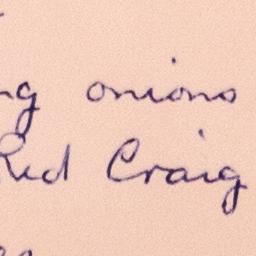 onions
Red Craig